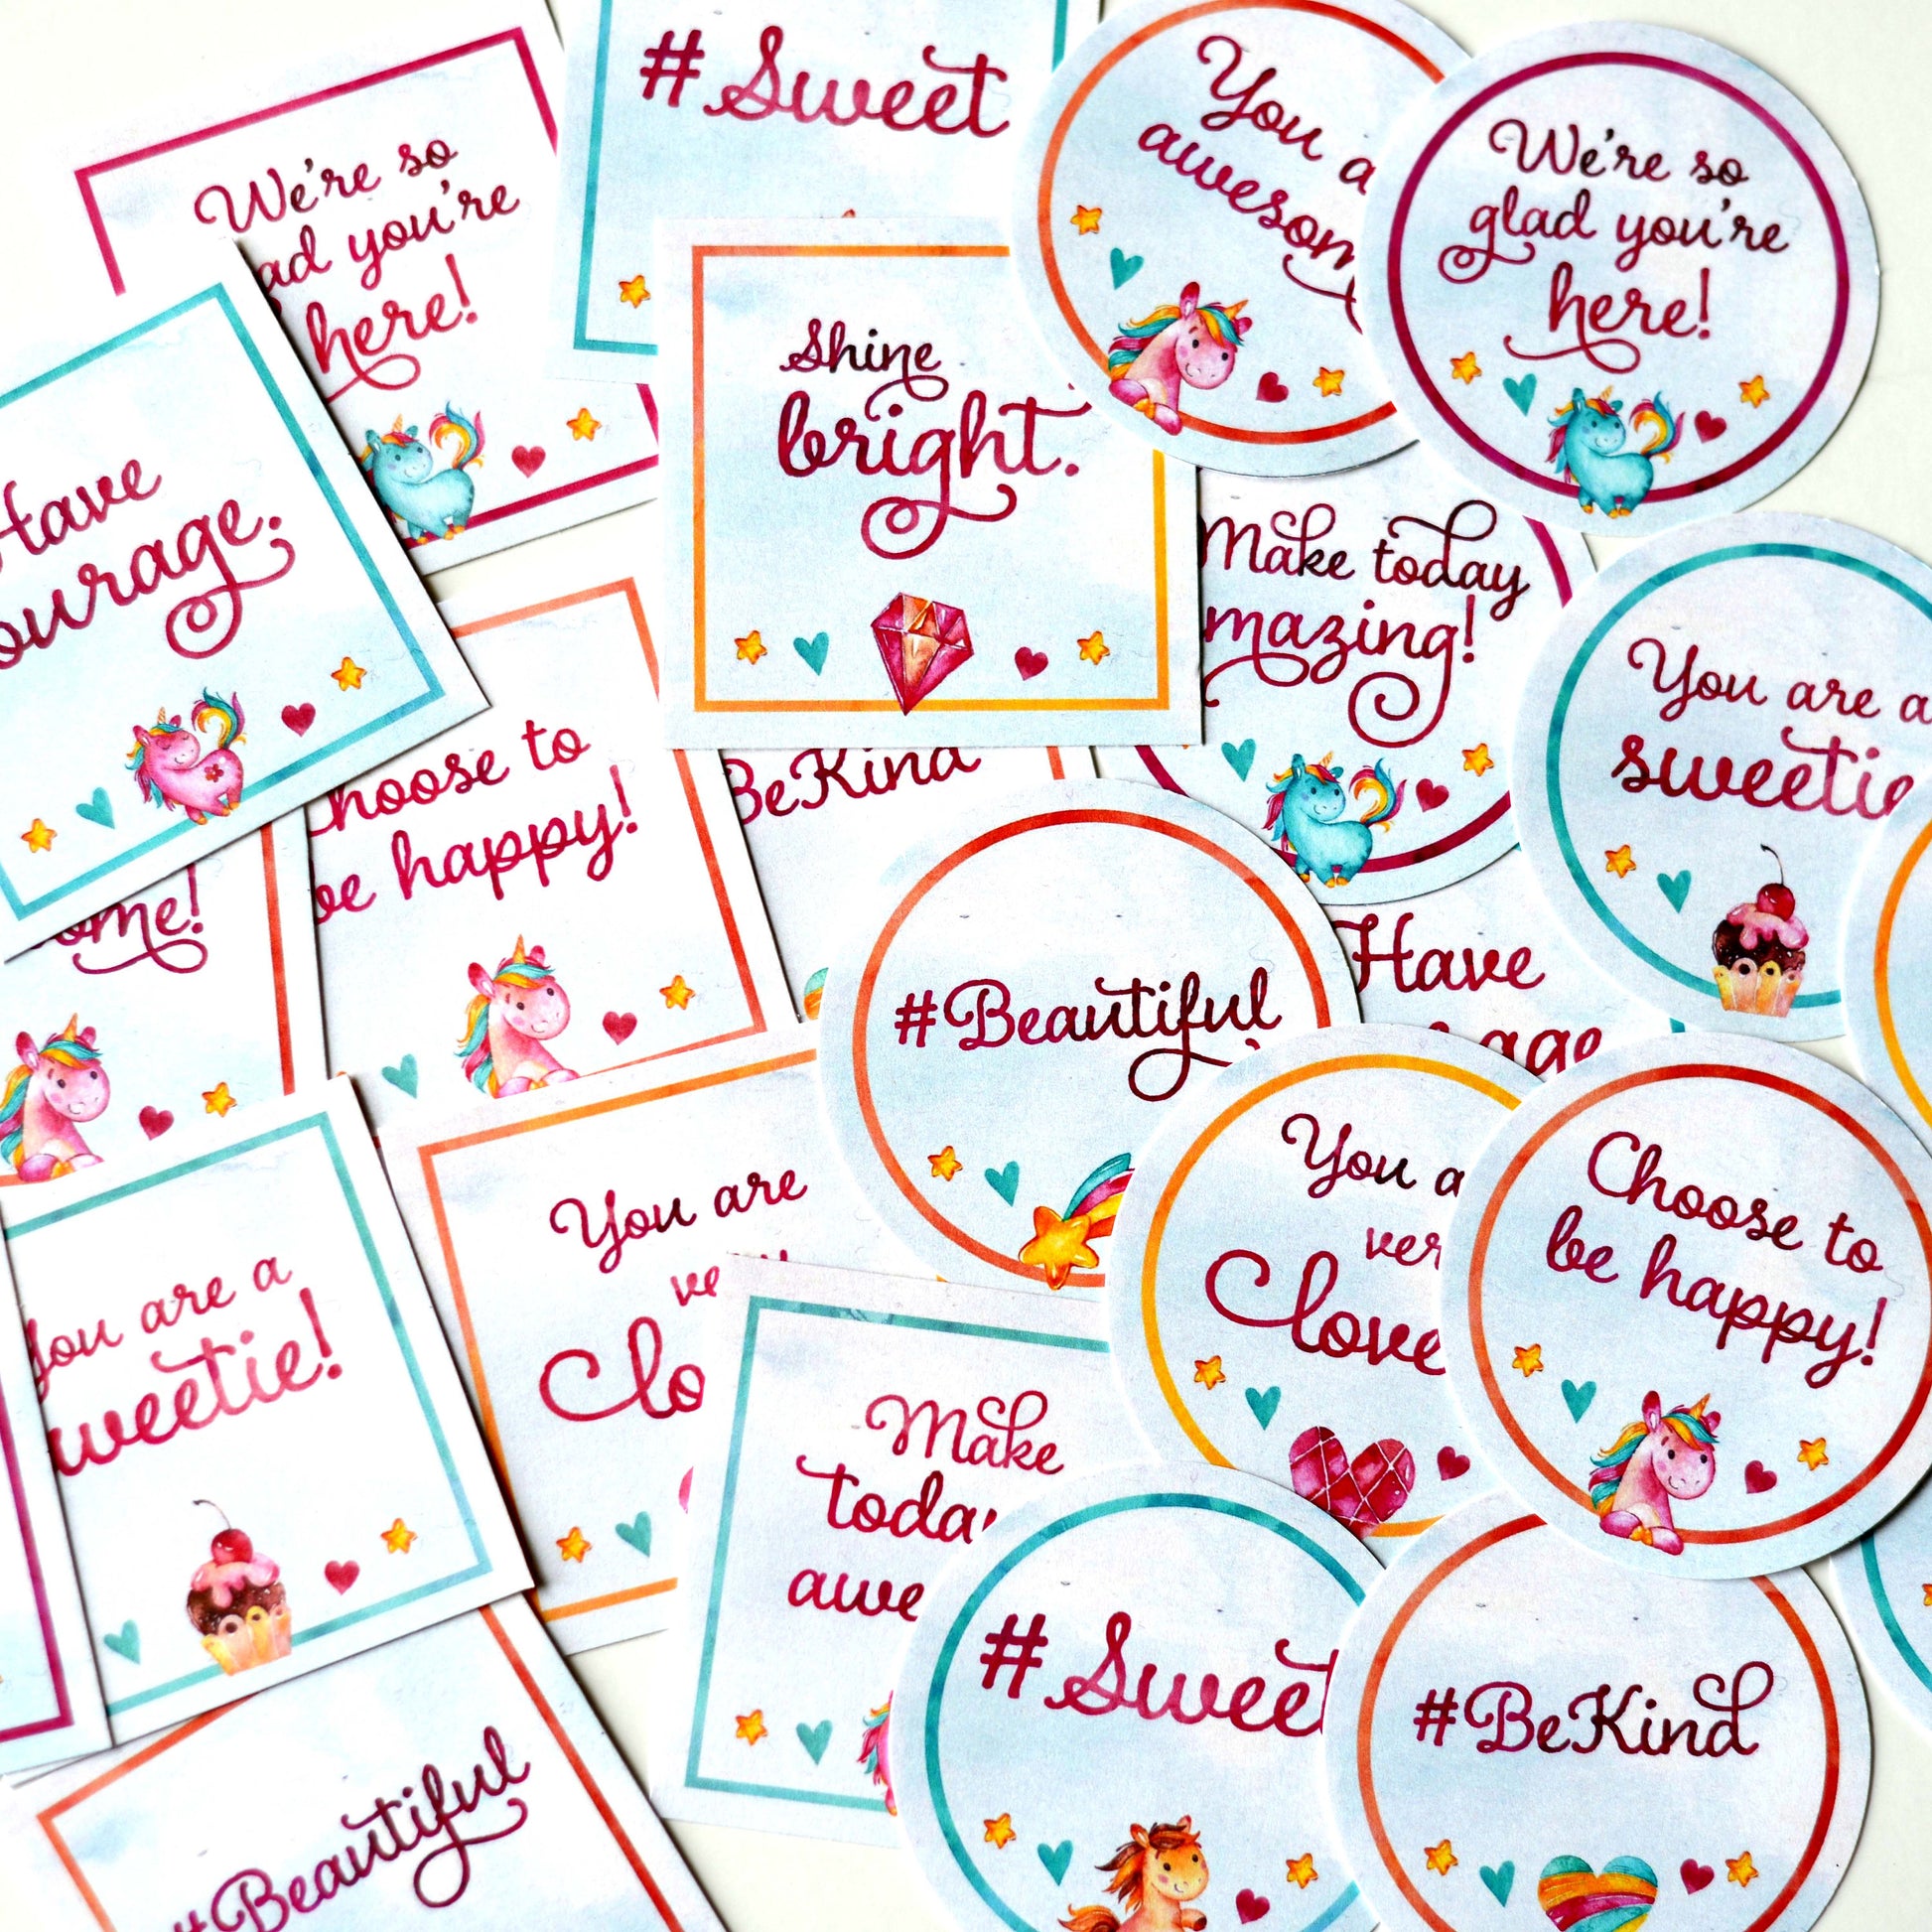 #Sweet
We're so
ad you're
here!
You a
awesom
We're so
glad you're
here!
Shine
bright.
Have
ourage.
Make today
mazing!
You are a
sweetie
Choose to
be happy!
BeKind
ome!
#Beautiful
Have
age
You are
ve
Clo
You a
ver
Clove
Choose to
be happy!
You are a
weetie!
Make
today
awe
#Sweet
#BeKind
#Beautiful